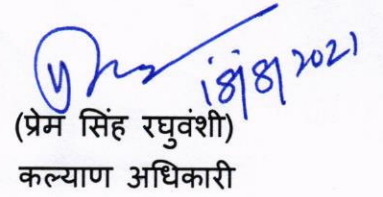 18/8/2021
(प्रेम सिंह रघुवंशी)
कल्याण अधिकारी